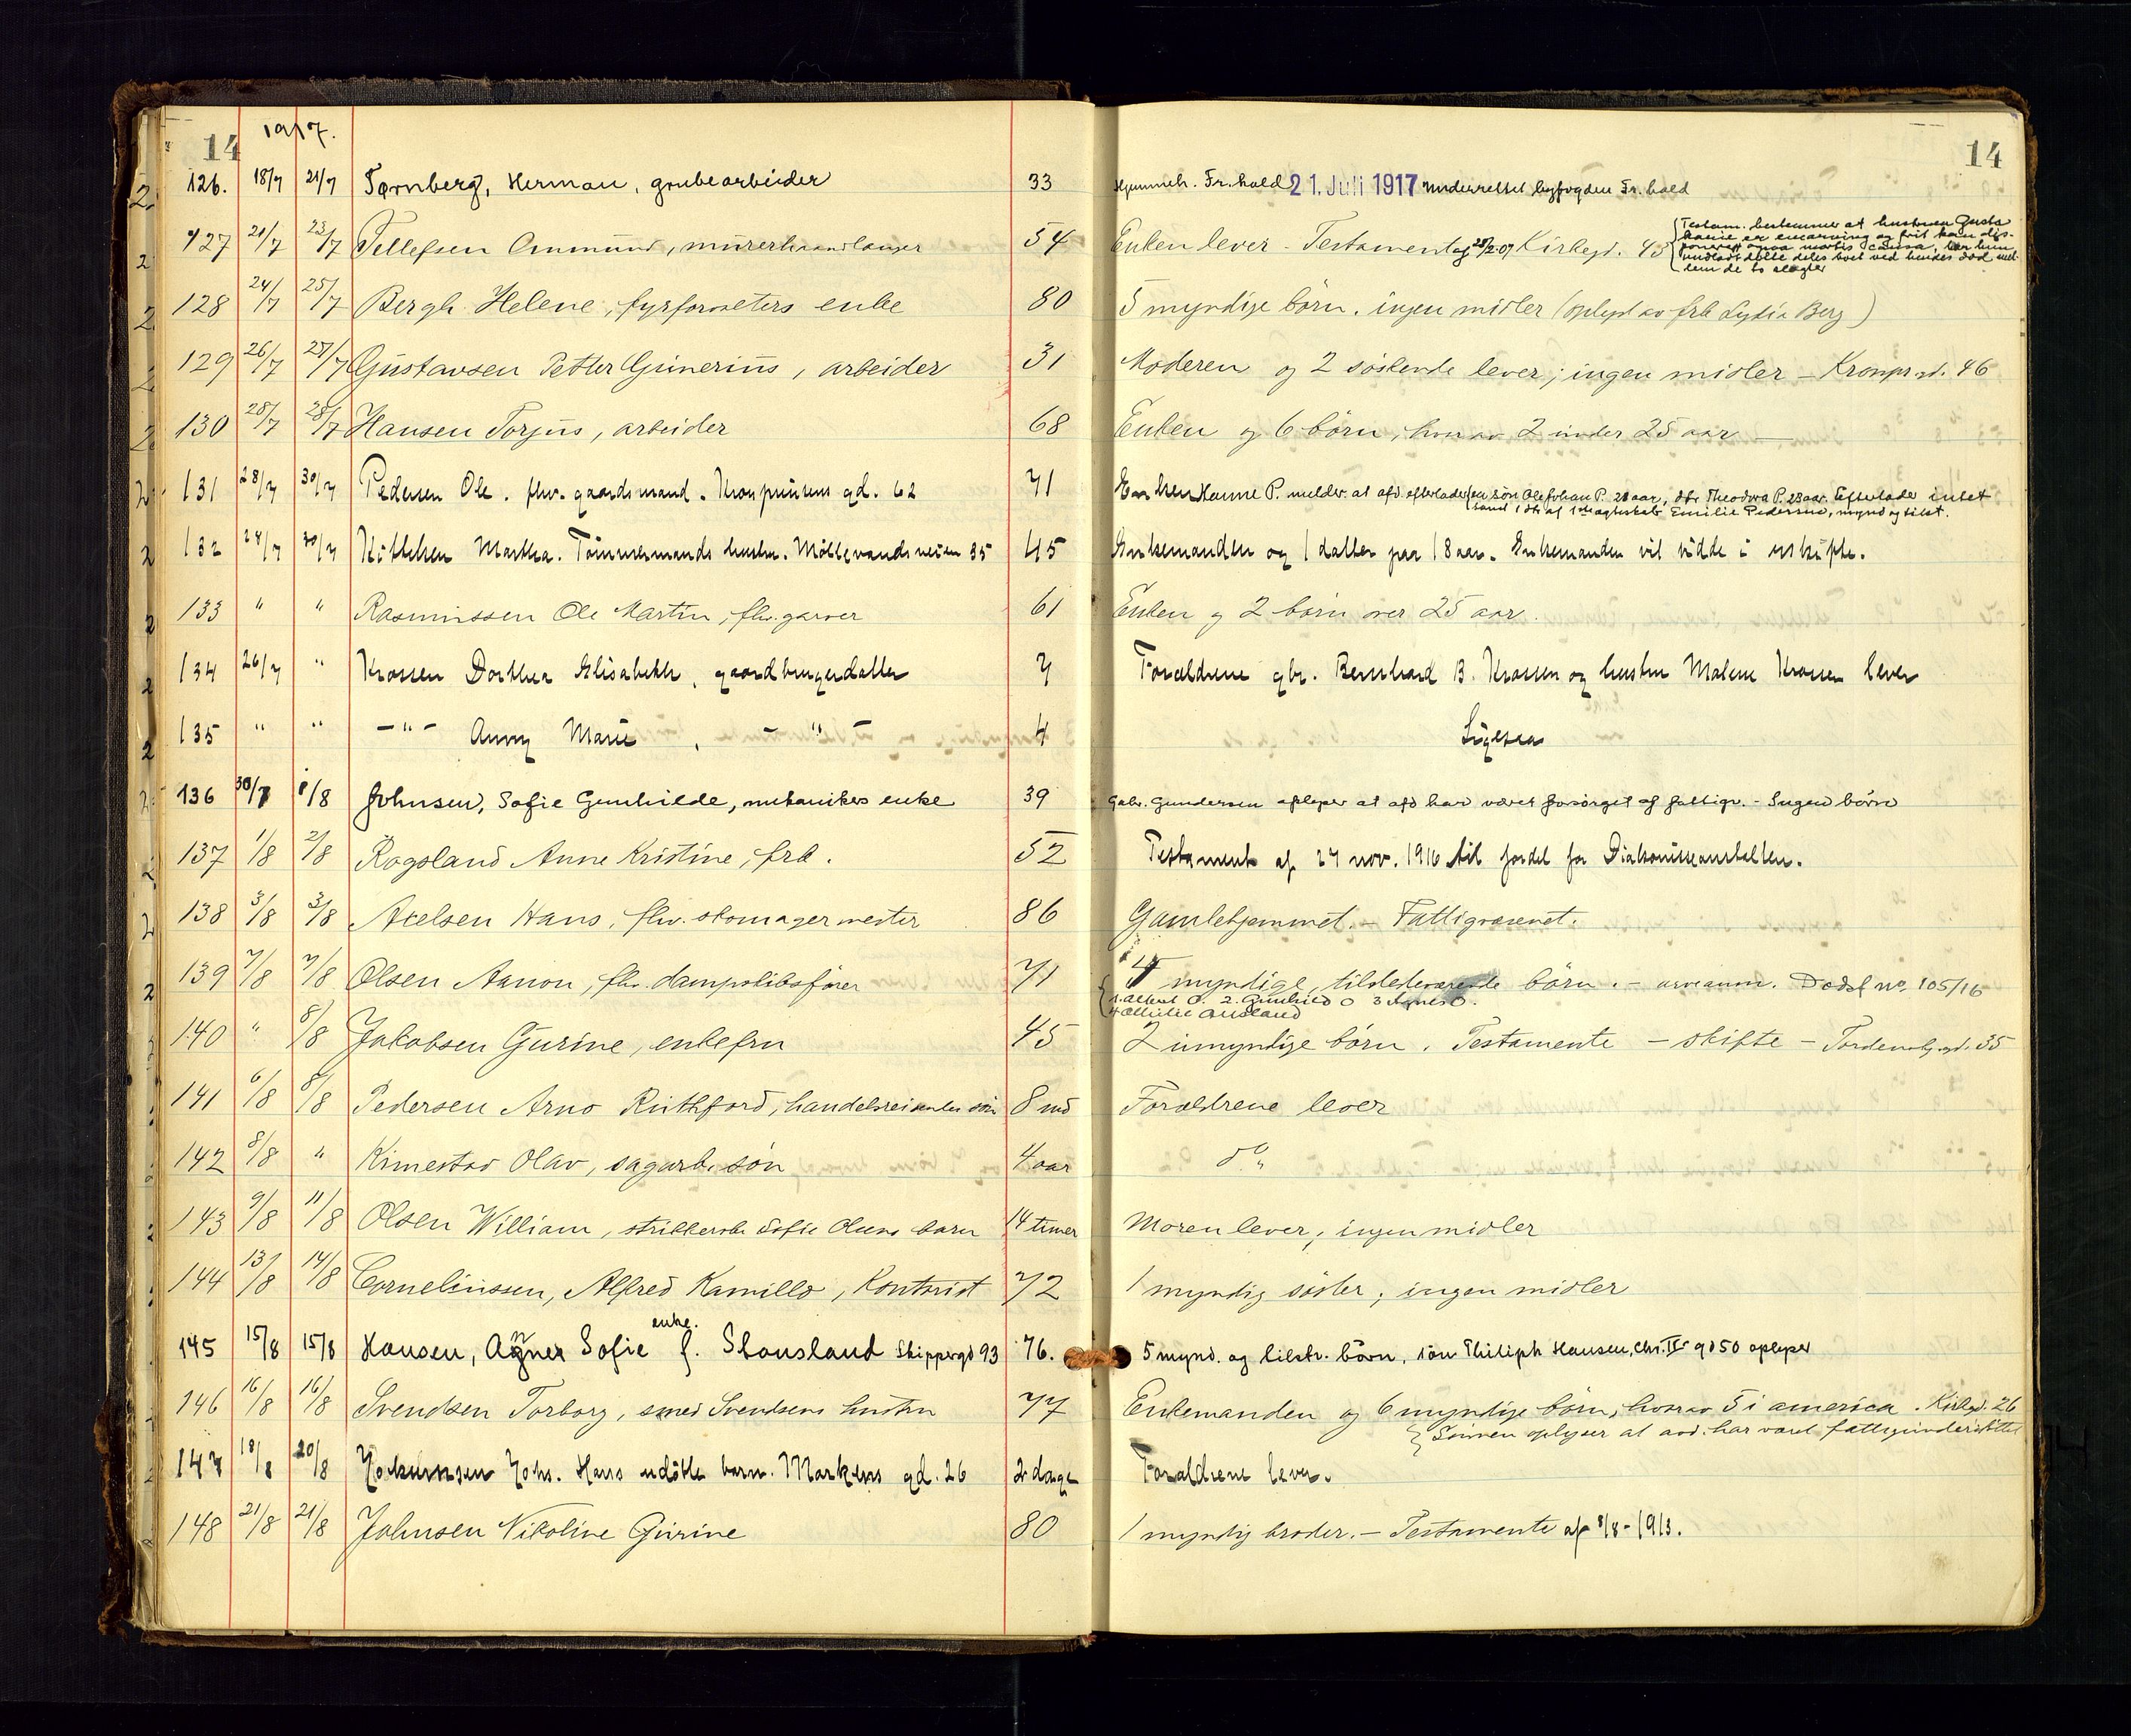 14 1917. 14
126. 18/7 21/7 Tørnberg, Herman, grubearbeider 33 Hjemmeh. Fr.hald 21. Juli 1917 underrettet byfogden Fr. hald
127 21/7 23/7 Tellefsen Ommund, murerhaandlanger 54 Enken lever - Testamente 28/2-07 Kirkegd. 43
Testam. bestemmer at hustruen
er enearving og frit kan dis-
ponere ogsaa mortis causa, har hun
undladt dette deles boet ved hendes død mel-
lem de to slegter
128 24/7 25/7 Bergh Helene, fyrforvalters enke 80 5 myndige börn. ingen midler (oplyst av frk Lydia Berg)
129 26/7 27/7 Gustavsen Petter Gunerius, arbeider 31 Moderen og 2 söskende lever; ingen midler - Kronprgd. 46
130 28/7 28/7 Hansen Torjus, arbeider 68 Enken og 6 börn, hvorav 2 under 25 aar
131 28/7 30/7 Pedersen Ole. fhv. gaardsmand. Kronprinsens gd. 62 71 Enken Hanne P. melder at afd. efterlader en søn Ole Johan P. 21 aar, dtr. Theodora P. 28 aar. Efterlader intet
samt 1 dtr af 1ste ægteskab Emilie Pedersen, mynd og tilst.
132 28/7 30/7 Kittelsen Martha. Tömmermands hustru. Möllevandsveien 35 45 Enkemanden og 1 datter paa 18 aar. Enkemanden vil sidde i uskifte.
133 " " Rasmussen Ole Martin, fhv. garver 61 Enken og 2 börn over 25 aar.
134 26/7 " Krossen Dorthea Elisabeth, gaardbrugerdatter 7 Forældrene gbr. Bernhard B. Krossen og hustru Malene Krossen lever
135 " " -"- Anny Marie, -"- 4 Ligesaa
136 30/7 1/8 Johnsen, Sofie Gunhilde, mekanikers enke 39 Gabr. Gundersen oplyser at afd har været forsörget af fattigv. - Ingen börn
137 1/8 2/8 Rogsland Anne Kristine, frk. 52 Testament af 27 nov. 1916 til fordel for Diakonisseanstalten.
138 3/8 3/8 Axelsen Hans, fhv. skomagermester 86 Gamlehjemmet. - Fattigvæsenet.
139 7/8 7/8 Olsen Aanon, fhv. dampskibsförer 71 4 myndige, tilstedeværende börn. - arveanm. Dødsf no. 105/16
1. Albert O. 2. Gunhild O 3 Agnes O.
4 Ausland
140 " 8/8 Jakobsen Gurine, enkefru 45 2 umyndige börn. Testamente - skifte - Tordenskj.gd. 35
141 6/8 8/8 Pedersen Arno Ruthford, handelsreisendes sön 8 md Forældrene lever
142 8/8 " Kimestad Olav, sagarb. sön 4 aar do "
143 9/8 11/8 Olsen William, strikkerske Sofie Olsens barn 14 timer Moren lever; ingen midler
144 13/8 14/8 Corneliussen, Alfred Kamillo, Kontorist 72 1 myndig söster; ingen midler
enke.
145 15/8 15/8 Hansen, Agner Sofie f. Stousland Skippergd 93 76. 5 mynd. og tilst. börn, sön Philiph Hansen, Chr. IVs gd 50 oplyser
146 16/8 16/8 Svendsen Torborg, smed Svendsens hustru 77 Enkemanden og 6 myndige börn, hvorav 5 i america. Kirkegd. 26
Sönnen oplyser at avd. har været fattigunderstöttet
147 18/8 20/8 Jokumsen Johs. Hans udöbte barn. Markens gd. 26 2 dage Forældrene lever.
148 21/8 21/8 Johnsen Nikoline Gurine 80 1 myndig broder. - Testamente af 8/8-1913.